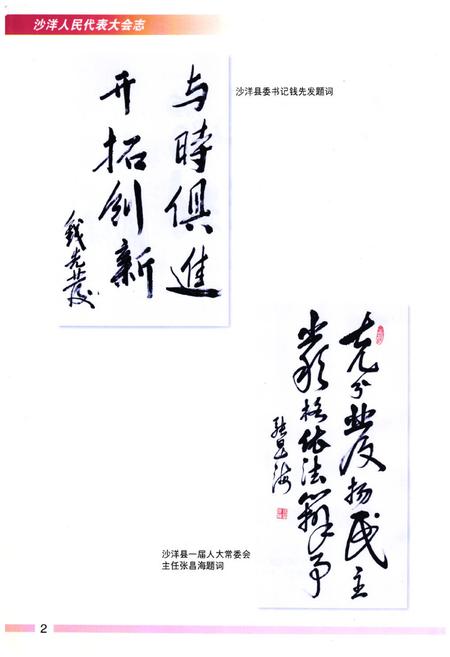 沙洋人民代表大会志
与時俱進
开拓创新
钱先发
沙洋县委书记钱先发题词
充分發扬民主
严格依法辦事
张昌海
沙洋县一届人大常委会
主任张昌海题词
2